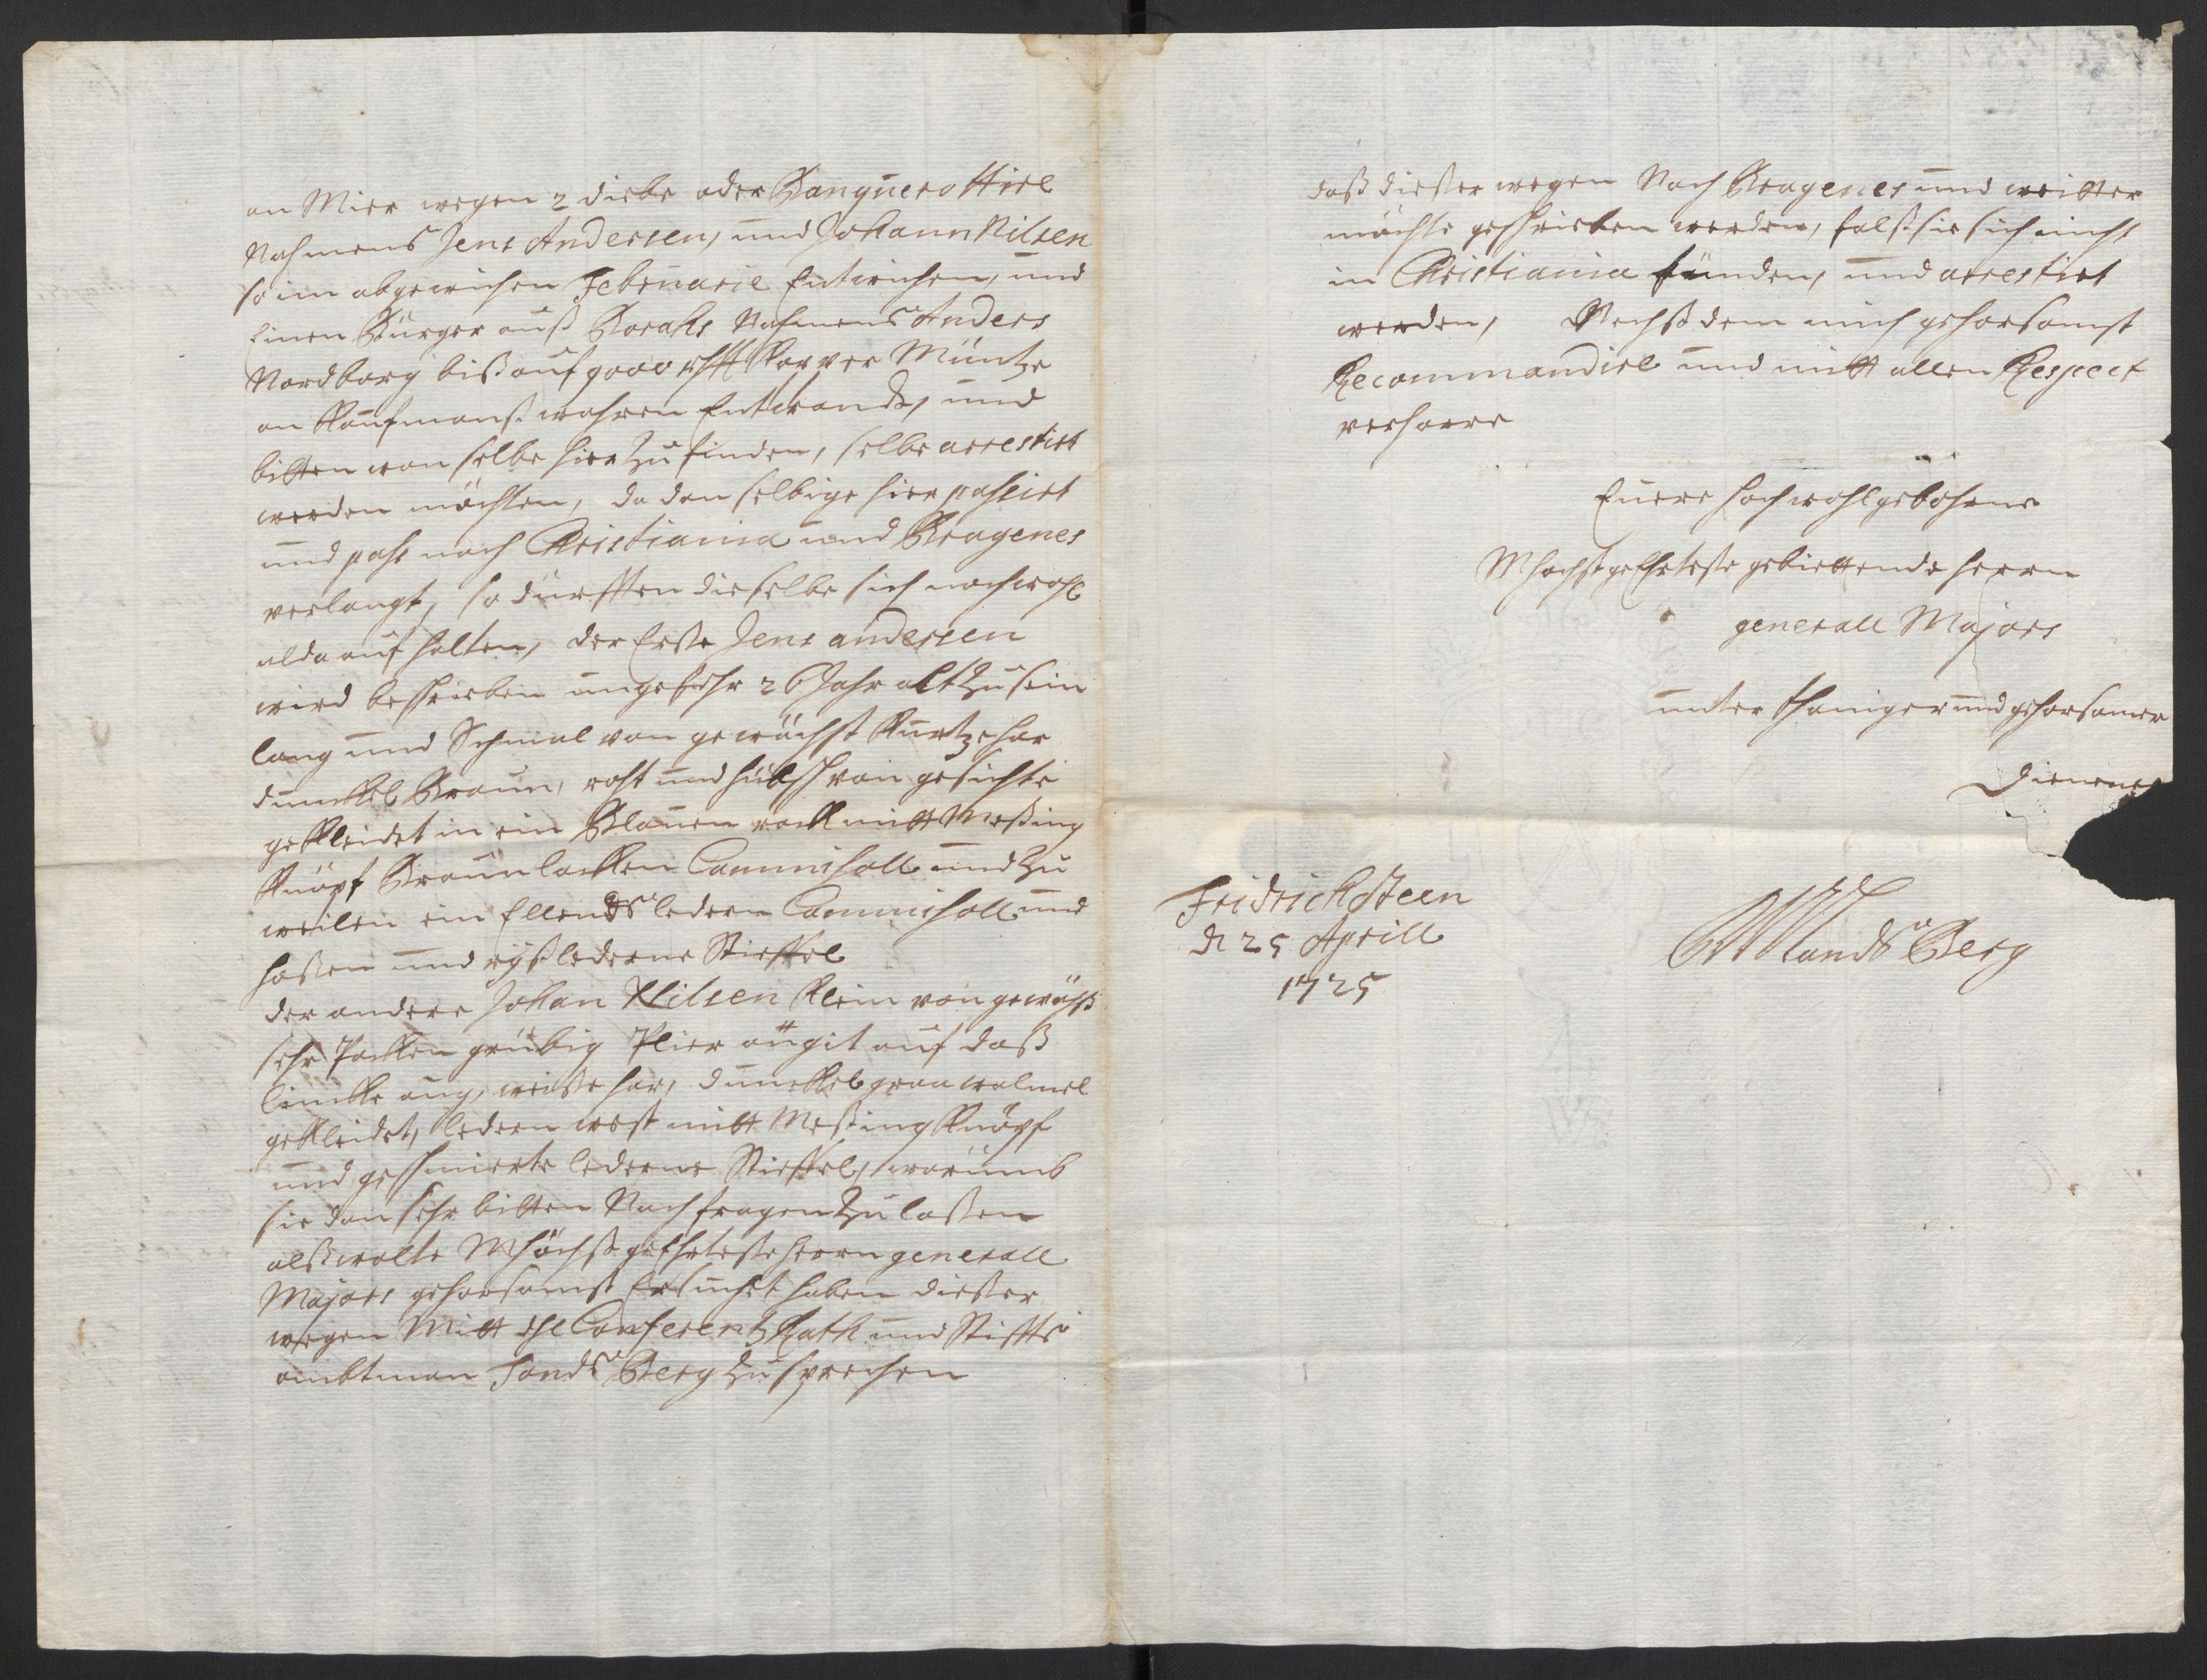 an Mier wegen 2 diebe oder Banquerottirl
Nahmens Jens Andersen, und Johann Nilsen
so im abgewichen Februarie Entwichen, und
Einen Bürger auß Borahs Nahmens Anders
Nordborg biß auf 9000 rthl Kopper Müntze
an Kaufmanß wahren Entwandt, und
bitten wan selbe hier zu finden, selbe arrestirt
werden möchten, da dan selbige hier passirt
und pass nach Christiania und Bragenes
verlangt, so dürfften dieselbe sich nach wohl
alda auf halten, der Erste Jens andersen
wird beschrieben ungefehr 26 Jahr alt zu sein
lang und Schmal von gewächst Kurtze har
dunckel Braun, roht und hübsch von gesichte
gekleidet in ein Blauen rock mitt Meßing
Knöpf Braun lacken Cammisoll und zu
weilen ein Ellends ledern Cammisoll und
hoßen und rÿßlederne Stieffel
der andere Johan Nilsen klein von gewächs
sehr Pocken grübig Plier äugit auf daß
lincke aug, weiße har, dunckel grau walmel
gekleidet, ledern west mitt Meßing Knöpf
und geschmierte lederne Stieffel, warumb
sie dan sehr bitten Nach fragen zu laßen
alß wolte MHöchst geEhrteste Herrn generall
Majors gehorsamst Ersuchet haben dießer
wegen Mitt Conferentz Rath und Stiffts
ambtman Tonds Berg zu sprechen
daß dießer wegen Nach Bragenes und weitter
möchte geschrieben werden, falß sie sich nicht
in Christiania fünden, und arrestirt
werden, Nechst dem mich gehorsamst
Recommandire und mitt allen Respect
verharre
Euere Hoch wohlgebohrne
MHochstgeEhrteste gebiettende Herrn
generall Majors
unter thäniger und gehorsamer
Diener
Fridrichsteen
d 25 Aprill
1725
Landsberg